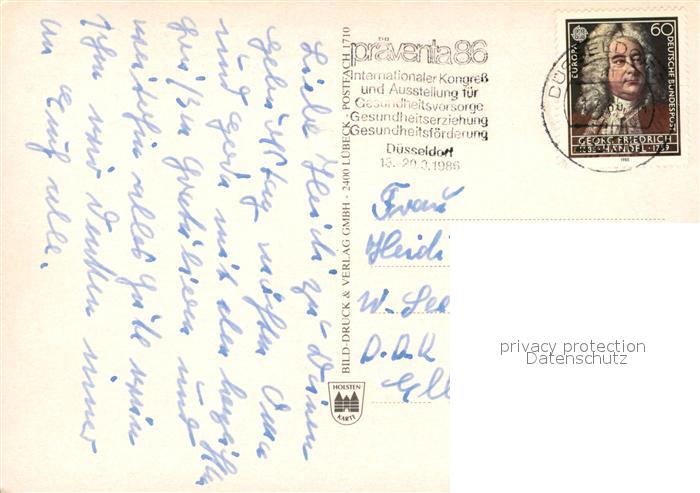 Liebe Heidi zu Deinem
Geburtstag möchten Oma
und Gerd mit den herzlichsten
Grüßen gratulieren und
weiterhin alles Gute vom
wir denken immer
an Euch alle.
BILD-DRUCK & VERLAG GMBH - 2400 LÜBECK - POSTFACH 1710
HOLSTEN
KARTE
präventa 86
Internationaler Kongreß
und Ausstellung für
Gesundheitsvorsorge
Gesundheitserziehung
Gesundheitsförderung
Düsseldorf
EUROPA
60
DEUTSCHE BUNDESPOST
GEORG FRIEDRICH
HÄNDEL
1985
Frau
Heidi
privacy protection
Datenschutz